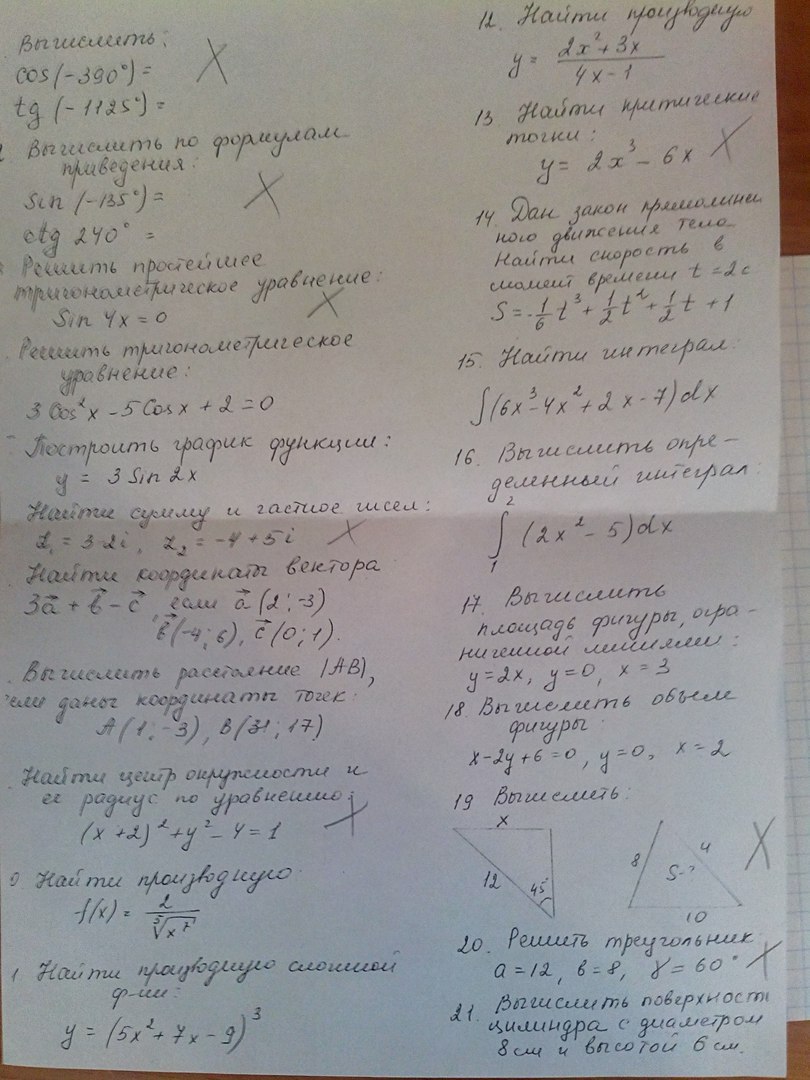 Вычислить:
cos(-390°)=
tg(-1125°)=
Вычислить по формулам
приведения:
Sin(-135°)=
ctg 240° =
Решить простейшее
тригонометрическое уравнение:
Sin 4x = 0
Решить тригонометрическое
уравнение:
3 Cos²x - 5 Cosx + 2 = 0
Построить график функции:
y = 3 Sin 2x
Найти сумму и частное чисел:
z₁ = 3-2i, z₂ = -4+5i
Найти координаты вектора
3a⃗ + b⃗ - c⃗, если a⃗(2;-3)
b⃗(-4;6), c⃗(0;1).
Вычислить расстояние |AB|,
если даны координаты точек:
A(1;-3), B(31;17)
Найти центр окружности и
её радиус по уравнению:
(x+2)²+y²-4=1
Найти производную
f(x) = 2/⁵√x⁷
1. Найти производную сложной
ф-ии:
y = (5x²+7x-9)³
12. Найти производную
y = (2x²+3x)/(4x-1)
13 Найти критические
точки:
y = 2x³ - 6x
14. Дан закон прямолиней
ного движения тела.
Найти скорость в
момент времени t = 2c
S = -1/6 t³ + 1/2 t² + 1/2 t + 1
15. Найти интеграл:
∫(6x³-4x²+2x-7)dx
16. Вычислить опре-
деленный интеграл:
∫₁² (2x²-5)dx
17. Вычислить
площадь фигуры, огра-
ниченной линиями:
y=2x, y=0, x=3
18. Вычислить объем
фигуры:
x-2y+6=0, y=0, x=2
19 Вычислить:
x
12
45°
8
4
S-?
10
20. Решить треугольник
a=12, b=8, γ=60°
21. Вычислить поверхность
цилиндра с диаметром
8см и высотой 6см.